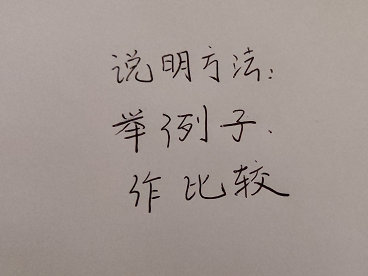 说明方法：
举例子.
作比较